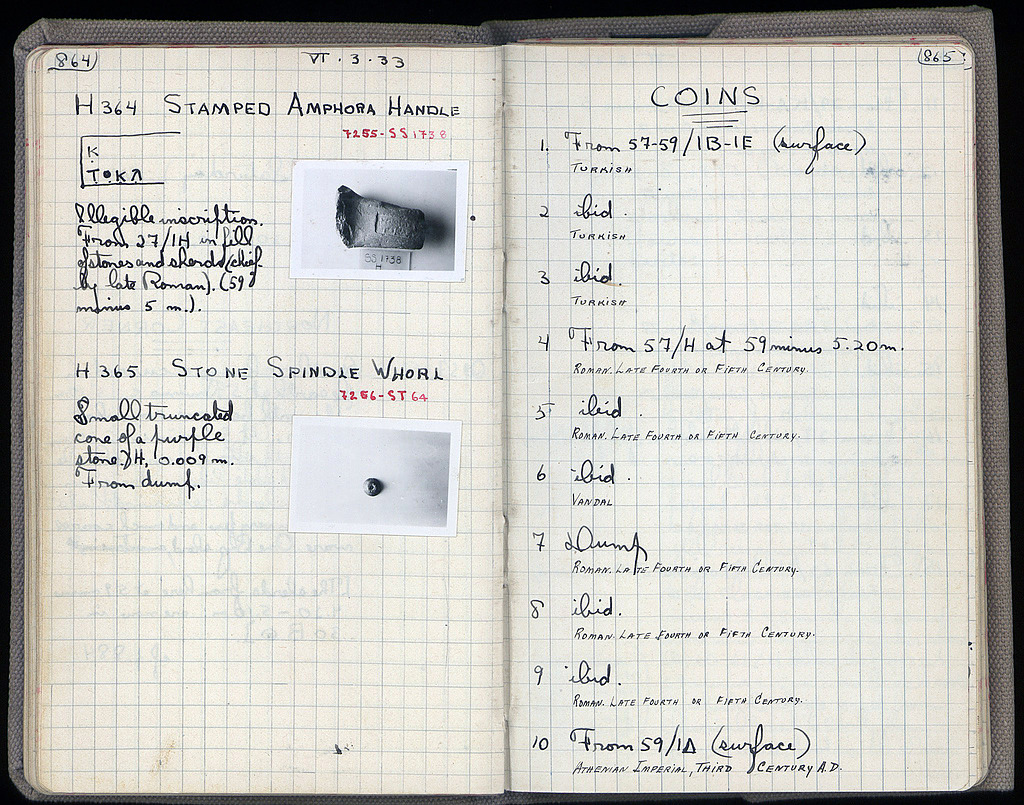 864
VI · 3 · 33
H 364 STAMPED AMPHORA HANDLE
7255-SS 1738
K
TOKA
Illegible inscription.
From 27/IH in fill
of stones and sherds (chief-
ly late Roman). (59
minus 5 m.).
SS 1738
H
H 365 STONE SPINDLE WHORL
7256-ST 64
Small truncated
cone of a purple
stone. H, 0.009 m.
From dump.
865
COINS
1. From 57-59/IB-IE (surface)
TURKISH
2 ibid.
TURKISH
3 ibid.
TURKISH
4 From 57/H at 59 minus 5.20 m.
ROMAN. LATE FOURTH OR FIFTH CENTURY.
5 ibid.
ROMAN. LATE FOURTH OR FIFTH CENTURY.
6 ibid.
VANDAL
7 Dump
ROMAN. LATE FOURTH OR FIFTH CENTURY.
8 ibid.
ROMAN. LATE FOURTH OR FIFTH CENTURY.
9 ibid.
ROMAN. LATE FOURTH OR FIFTH CENTURY.
10 From 59/IΔ (surface)
ATHENIAN IMPERIAL, THIRD CENTURY A.D.